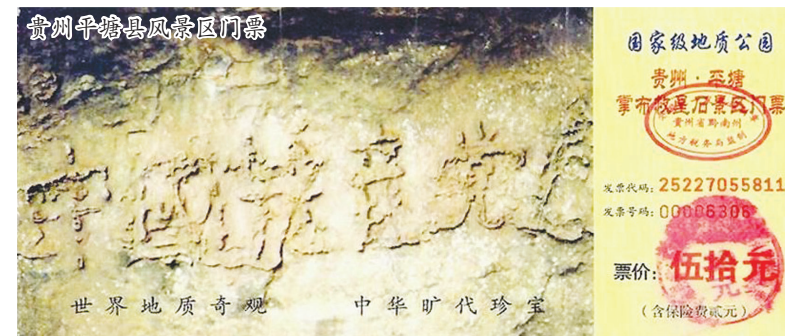 贵州平塘县风景区门票
中國共産党亡
世界地质奇观 中华旷代珍宝
国家级地质公园
贵州·平塘
掌布救星石景区门票
贵州省黔南州
地方税务局监制
发票代码：25227055811
发票号码：00006306
票价：伍拾元
（含保险费贰元）